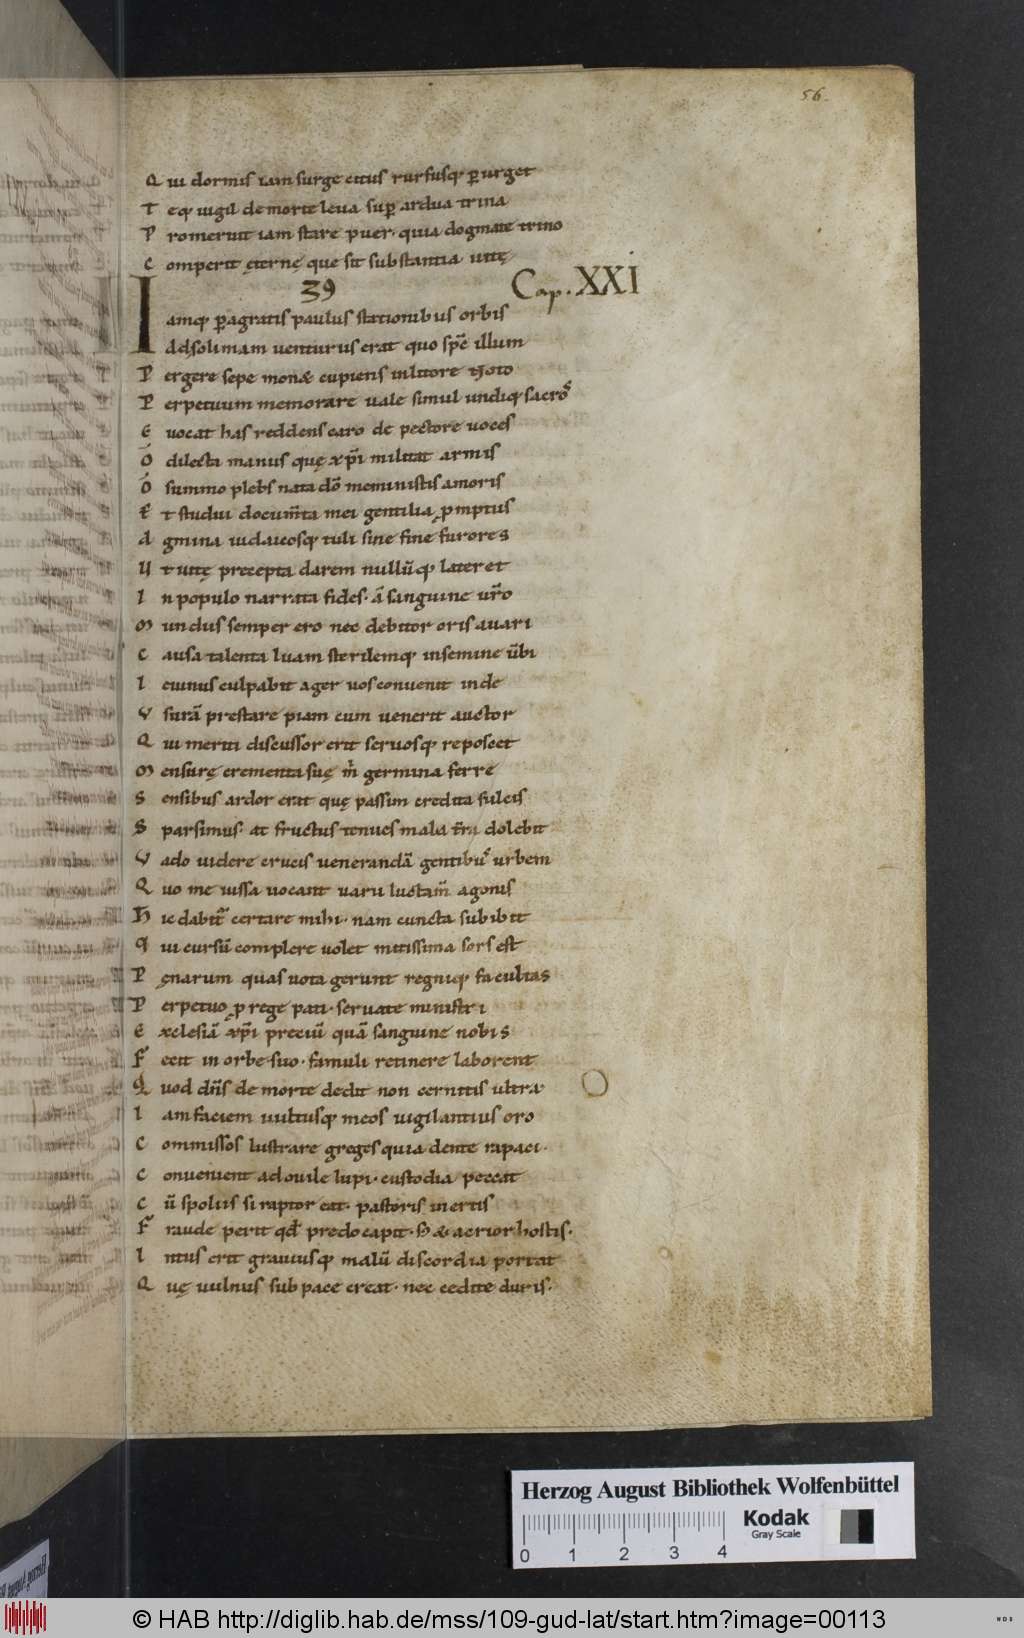 56.
Qui dormis iam surge citus rursusq; ꝑ urget
Teq; uigil de morte leua suꝑ ardua trina
Promeruit iam stare puer. quia dogmate trino
Comperit ęternę que sit substantia uitę
39 Cap. XXI
Iamq; ꝑagratis paulus stationibus orbis
Ad solimam uenturus erat quo sp̄c illum
Pergere sepe mon& cupiens in littore noto
Perpetuum memorare uale simul undiq; sacros
Euocat has reddens caro de pectore uoces
O dilecta manus quę xp̄i militat armis
O summo plebs nata dō meministis amoris
Et studui docum̄ta mei gentilia ꝓmptus
Agmina iudaicosq; tuli sine fine furores
Ut uitę precepta darem nullūq; lateret
In populo narrata fides. a sanguine ur̄o
Mundus semper ero nec debitor oris auari
Causa talenta luam sterilemq; in semine ūbi
Iciunus culpabit ager uos conuenit inde
Vsurā prestare piam cum uenerit auctor
Qui meriti discussor erit seruosq; reposcet
Mensurę crementa suę m̄ germina ferre
Sensibus ardor erat quę passim credita sulcis
Sparsimus. at fructus tenues mala tr̄ra dolebit
Vado uidere crucis uenerandā gentibus urbem
Quo me iussa uocant uarii luctam̄ agonis
Hic dabit̄ certare mihi. nam cuncta subibit
qui cursū complere uolet mitissima sors est
Pęnarum quas uota gerunt regniq; facultas
Perpetuo ꝓ rege pati. seruate ministri
Ecclesiā xp̄i preciū quā sanguine nobis
Fecit in orbe suo. famuli retinere laborent
Quod dn̄s de morte dedit non cernitis ultra
Iam faciem uultusq; meos uigilantius oro
Commissos lustrare greges quia dente rapaci.
Conuenient ad ouile lupi. custodia peccat
Cū spoliis si raptor eat. pastoris inertis
Fraude perit qđ predo capit. H& acrior hostis.
Intus erit grauiusq; malū discordia portat
Quę uulnus sub pace creat. nec cedite duris.
Herzog August Bibliothek Wolfenbüttel
0 1 2 3 4
Kodak
Gray Scale
© HAB http://diglib.hab.de/mss/109-gud-lat/start.htm?image=00113